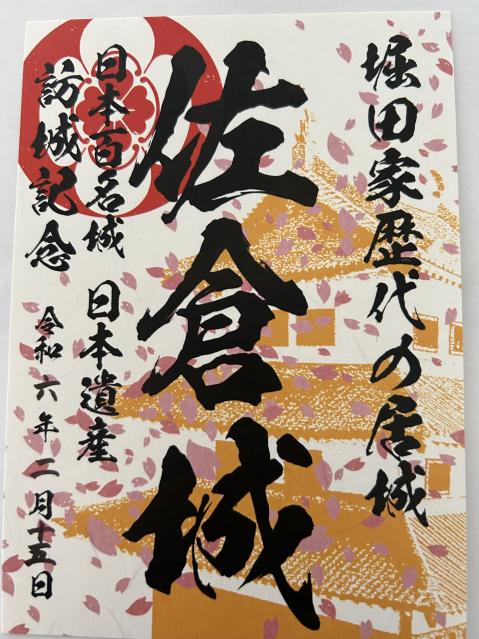 堀田家歴代の居城
佐倉城
日本百名城
日本遺産
訪城記念
令和六年二月十五日